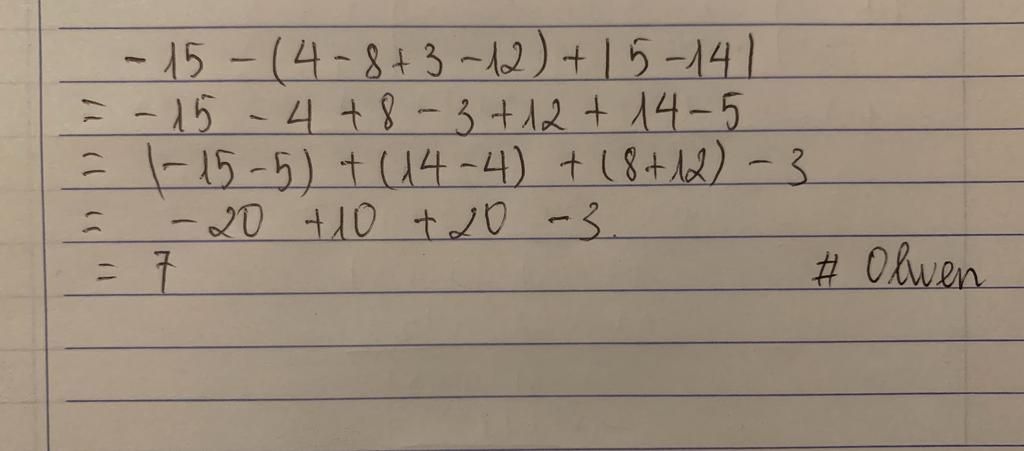 -15 - (4 - 8 + 3 - 12) + |5 - 14|
= -15 - 4 + 8 - 3 + 12 + 14 - 5
= (-15 - 5) + (14 - 4) + (8 + 12) - 3
= -20 + 10 + 20 - 3.
= 7 # Olwen